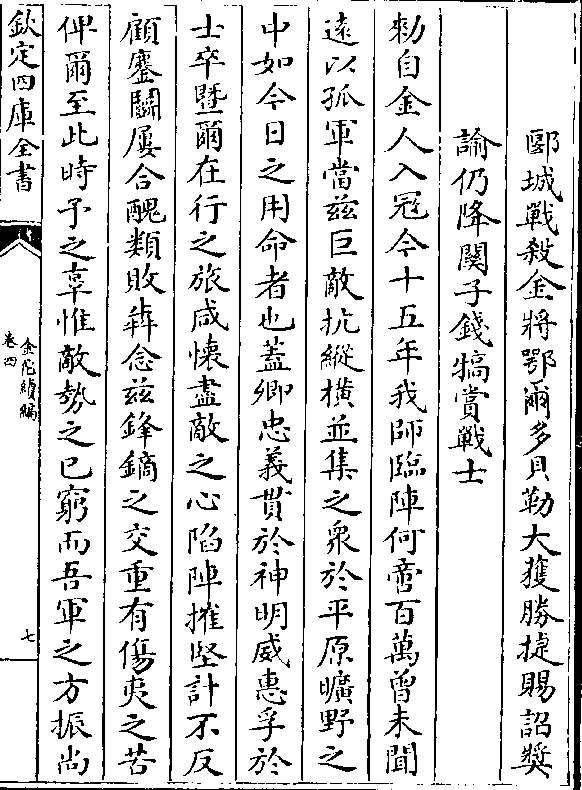 郾城戰殺金將鄂爾多貝勒大獲勝捷賜詔奬
諭仍降關子錢犒賞戰士
勅自金人入冦今十五年我師臨陣何啻百萬曾未聞
遠以孤軍當兹巨敵抗縱橫並集之衆於平原曠野之
中如今日之用命者也蓋卿忠義貫於神明威惠孚於
士卒暨爾在行之旅咸懷盡敵之心陷陣摧堅計不反
顧鏖鬭屢合醜類敗犇念兹鋒鏑之交重有傷夷之苦
俾爾至此時予之辜惟敵勢之已窮而吾軍之方振尚
欽定四庫全書
金佗續編
卷四
七